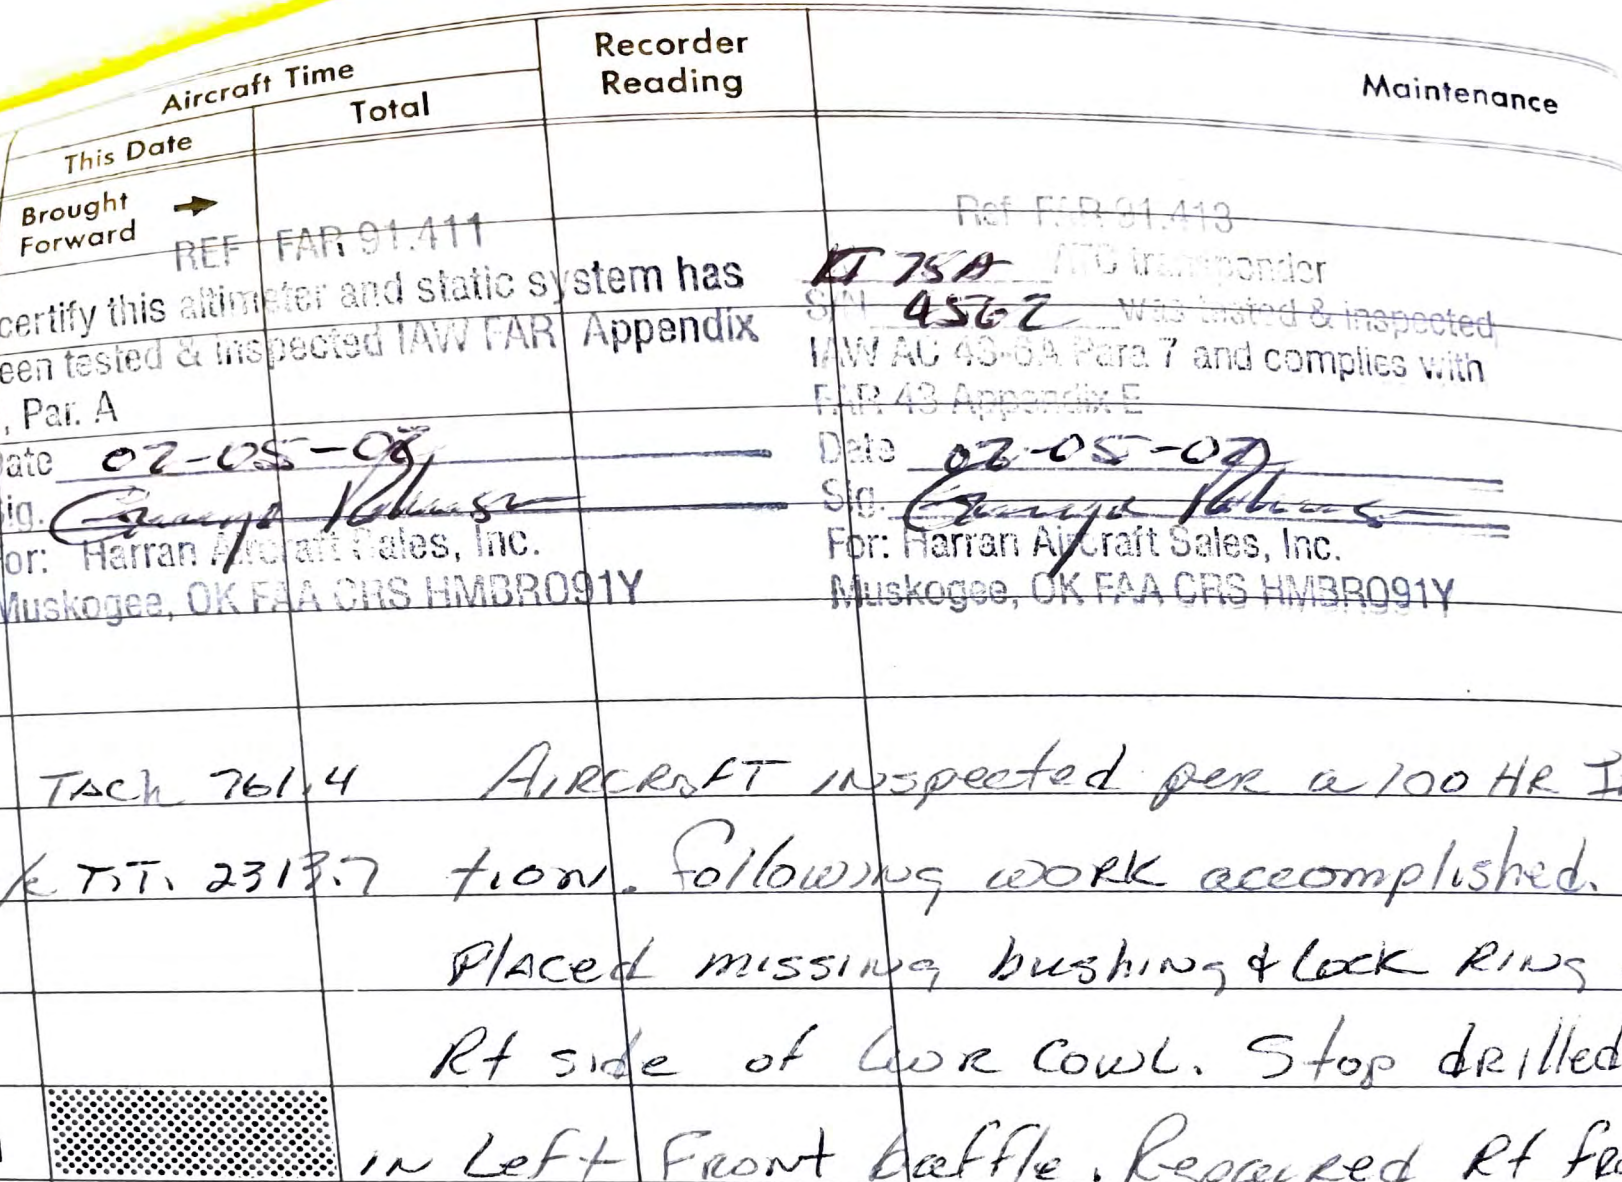 Aircraft Time
Recorder
Reading
Maintenance
This Date
Total
Brought
Forward
REF FAR 91.411
certify this altimeter and static system has
een tested & inspected IAW FAR Appendix
, Par. A
ate 02-05-02
ig.
or: Harran Aircraft Sales, Inc.
Muskogee, OK FAA CRS HMBR091Y
Ref FAR 91.413
KT 75A ATC transponder
S/N 4562 was tested & inspected
IAW AC 43-6A Para 7 and complies with
FAR 43 Appendix E
Date 02-05-02
Sig.
For: Harran Aircraft Sales, Inc.
Muskogee, OK FAA CRS HMBR091Y
Tach 761.4 Aircraft inspected per a 100 HR I
T.T. 2313.7 tion. Following work accomplished.
Placed missing bushing & lock Ring
Rt side of lwr cowl. Stop drilled
in Left Front baffle. Repaired Rt